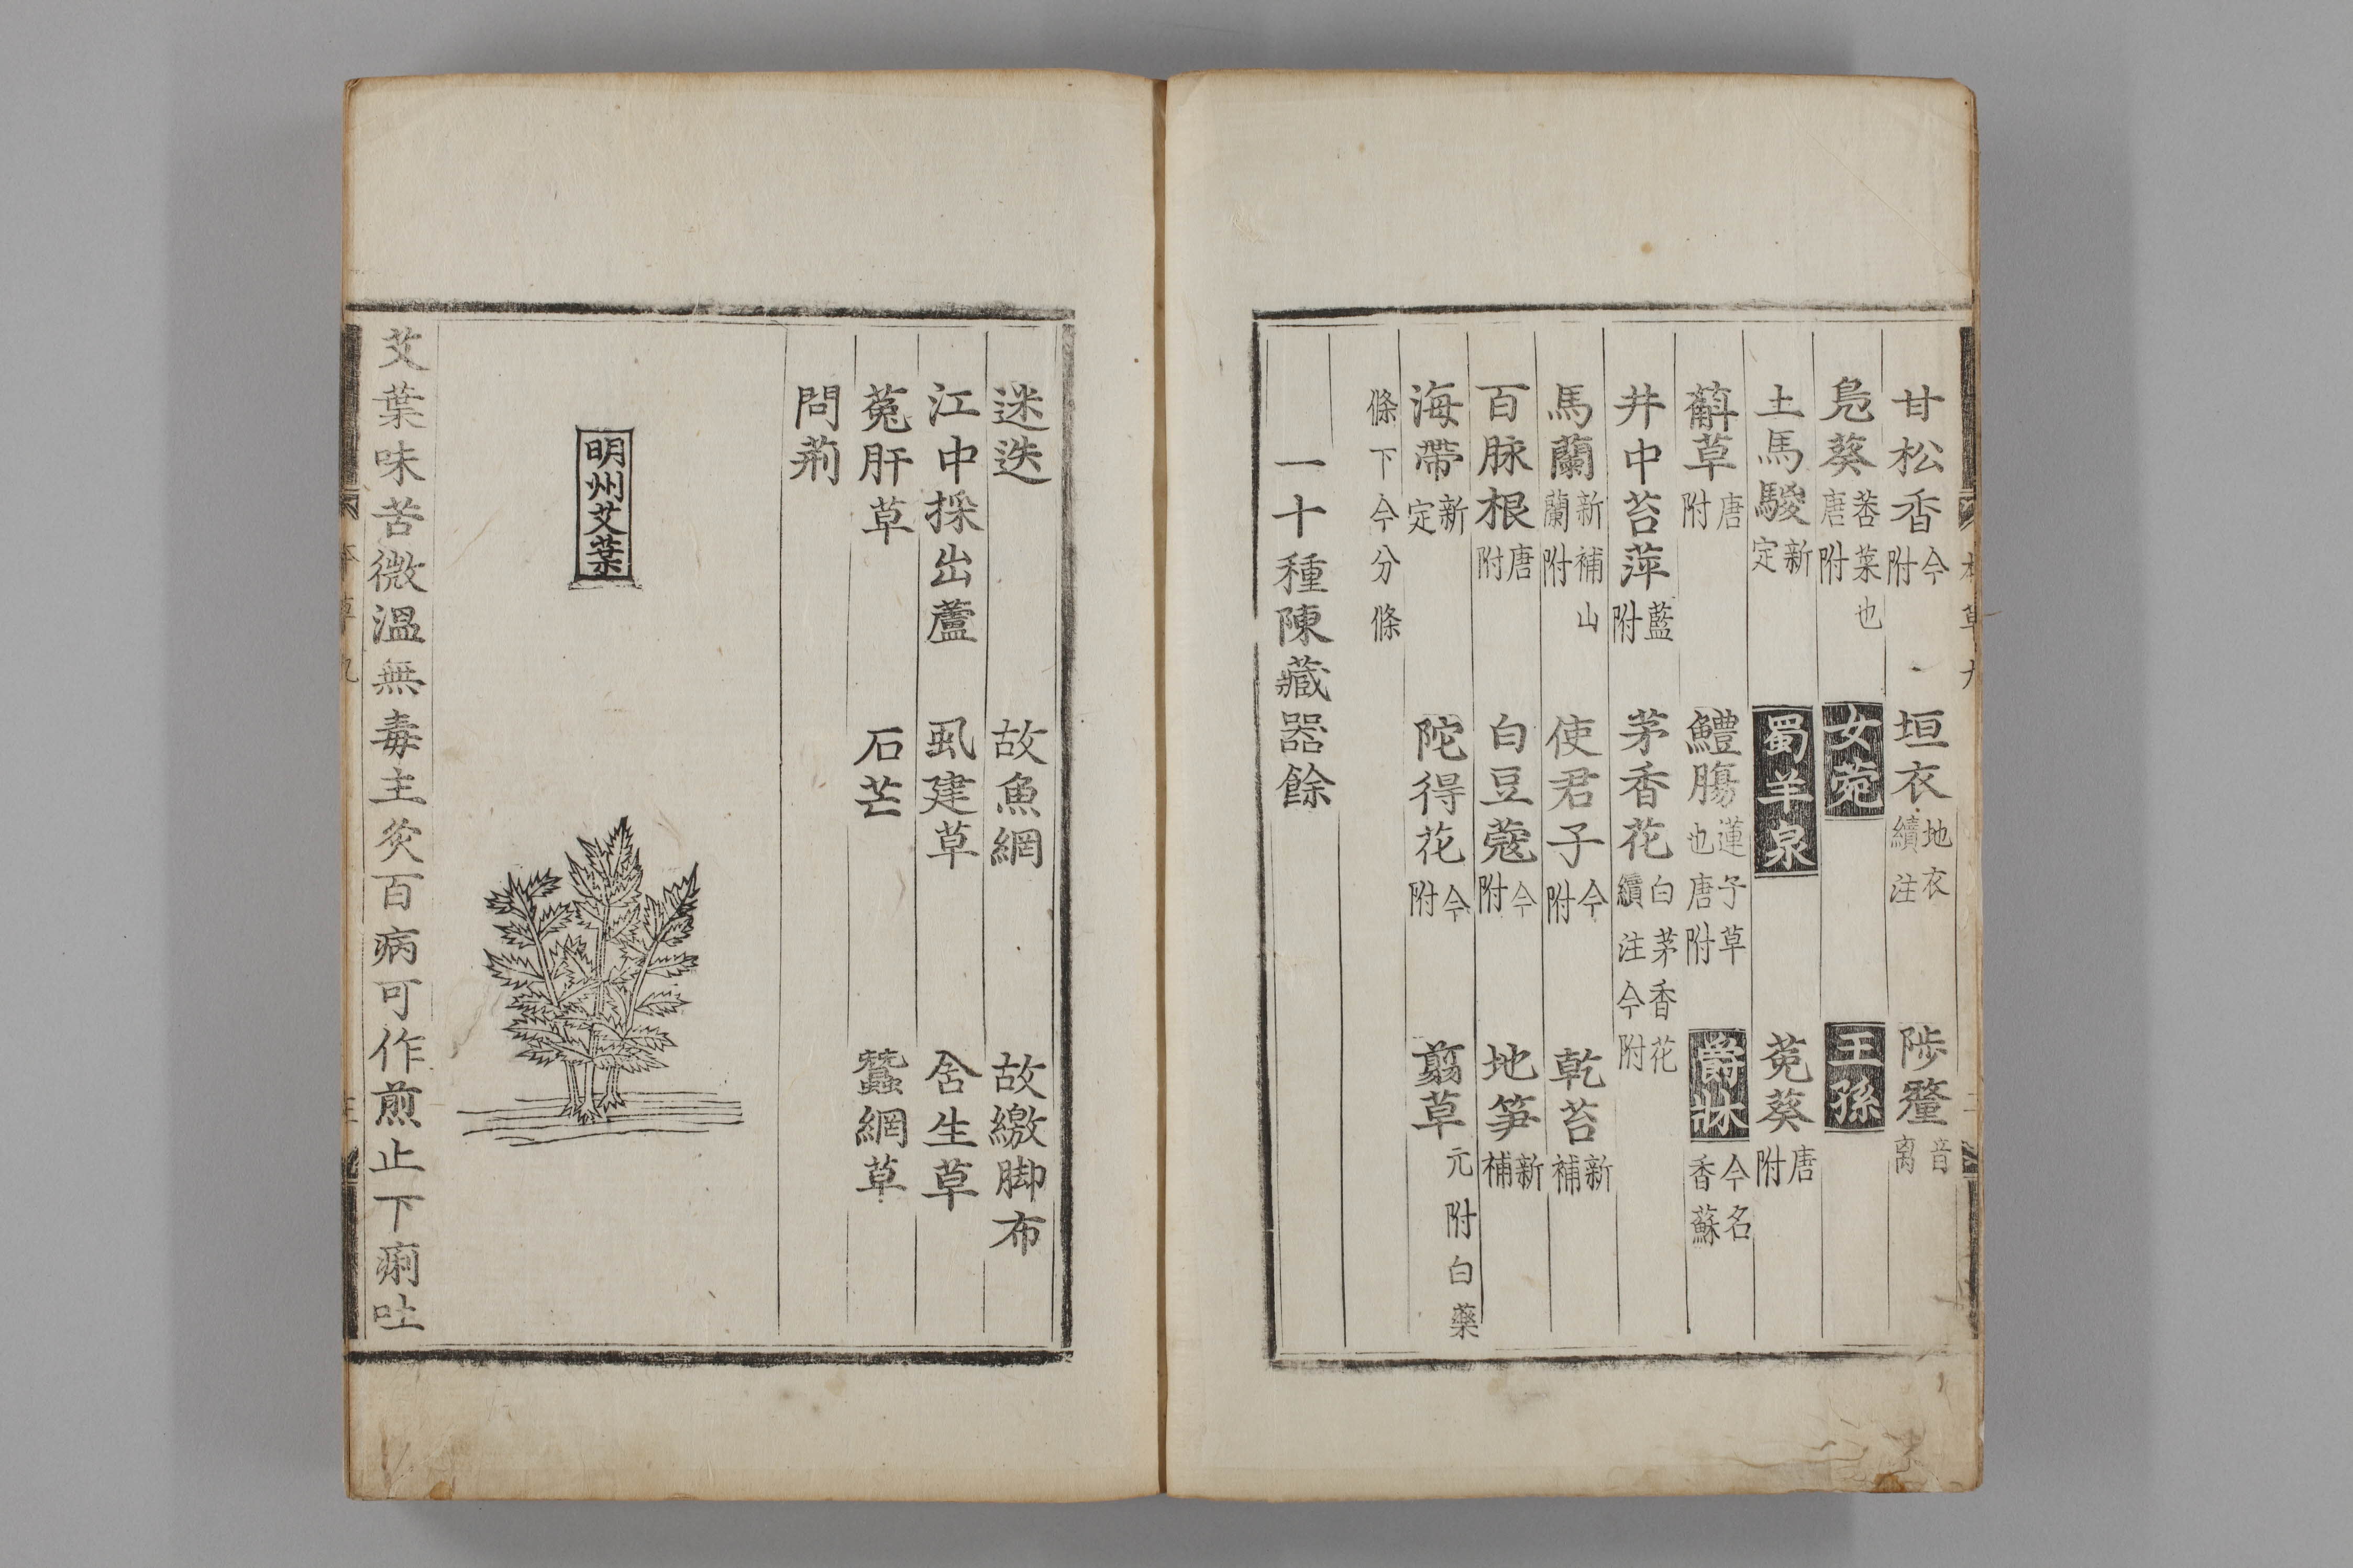 甘松香今附 垣衣地衣續注 陟釐音离
鳧葵莕菜也唐附 女菀 王孫
土馬騣新定 蜀羊泉 菟葵唐附
䔖草唐附 鱧腸蓮子草也唐附 爵牀今名香蘇
井中苔萍藍附 茅香花白茅香花續注今附
馬蘭新補山蘭附 使君子今附 乾苔新補
百脉根唐附 白豆蔻今附 地笋新補
海帶新定 陀得花今附 翦草元附白藥
條下今分條
一十種陳藏器餘
迷迭 故魚網 故繳脚布
江中採出蘆 虱建草 含生草
菟肝草 石芒 蠶網草
問荊
明州艾葉
艾葉味苦微溫無毒主灸百病可作煎止下痢吐